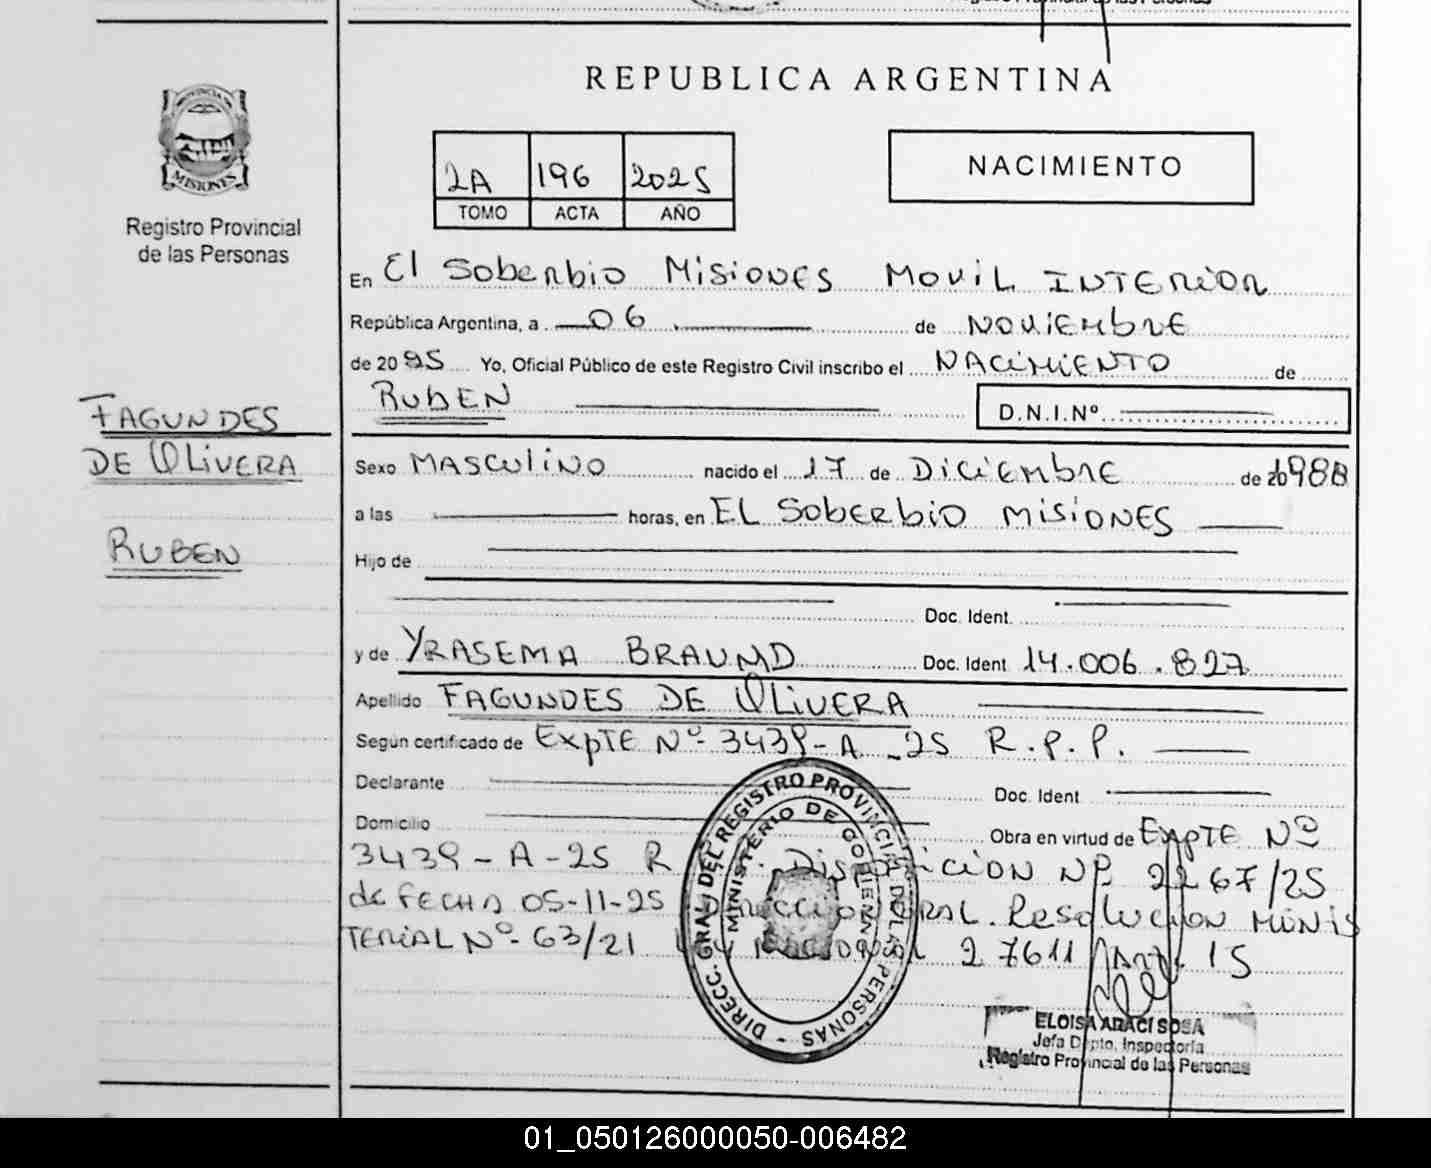 REPUBLICA ARGENTINA
PROVINCIA DE
MISIONES
Registro Provincial
de las Personas
2A 196 2025
TOMO ACTA AÑO
NACIMIENTO
En El Soberbio Misiones Movil Interior
República Argentina, a 06 de Noviembre
de 2025 Yo, Oficial Público de este Registro Civil inscribo el NACIMIENTO de
RUBEN D.N.I.Nº
FAGUNDES
DE OLIVERA
RUBEN
Sexo MASCULINO nacido el 17 de DICIEMBRE de 1988
a las horas, en EL SOBERBIO MISIONES
Hijo de
Doc. Ident.
y de YRASEMA BRAUND Doc. Ident 14.006.827
Apellido FAGUNDES DE OLIVERA
Según certificado de EXPTE Nº 3439-A-25 R.P.P.
Declarante Doc. Ident
Domicilio Obra en virtud de EXPTE Nº
3439-A-25 R Disposicion Nº 2267/25
de FECHA 05-11-25 Direccion GRAL. Resolucion MINIS
TERIAL Nº 63/21 Ley Nacional 27611 Art. 15
DIRECC. GRAL. DEL REGISTRO PROVINCIAL DE LAS PERSONAS -
MINISTERIO DE GOBIERNO
ELOISA ARACI SOSA
Jefa Dpto. Inspectoría
Registro Provincial de las Personas
01_050126000050-006482